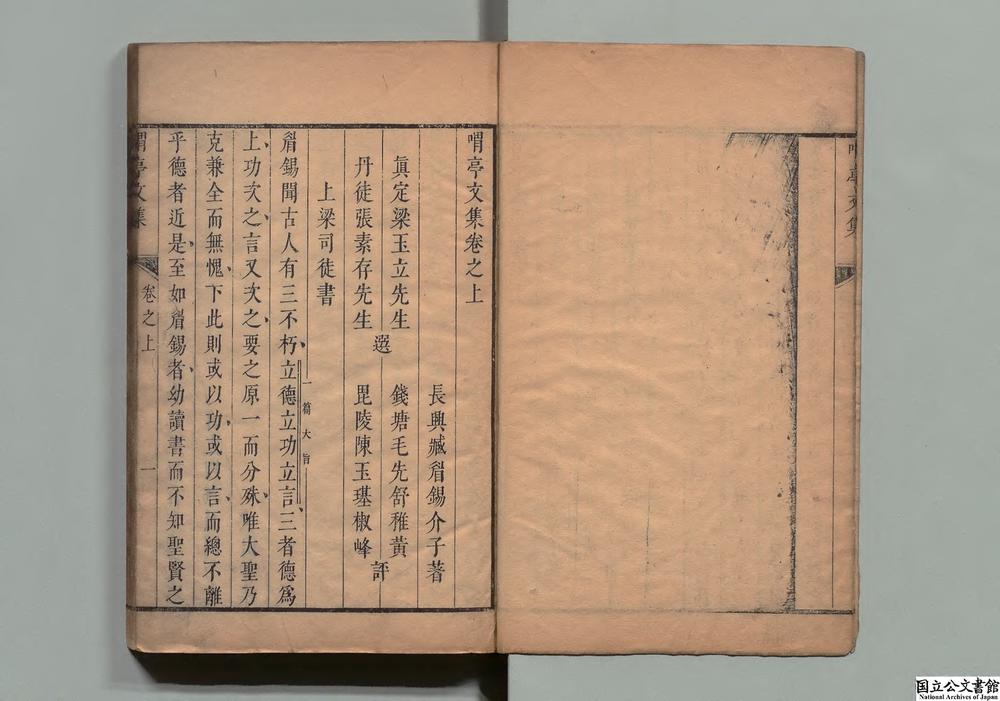 喟亭文集
喟亭文集卷之上
長興臧睂錫介子著
眞定梁玉立先生 錢塘毛先舒稚黃
選 評
丹徒張素存先生 毘陵陳玉璂椒峰
上梁司徒書
一篇大旨
睂錫聞古人有三不朽、立德立功立言、三者德爲
上、功次之、言又次之、要之原一而分殊、唯大聖乃
克兼全而無愧、下此則或以功、或以言、而總不離
乎德者近是、至如睂錫者、幼讀書而不知聖賢之
喟亭文集 卷之上 一
国立公文書館
National Archives of Japan